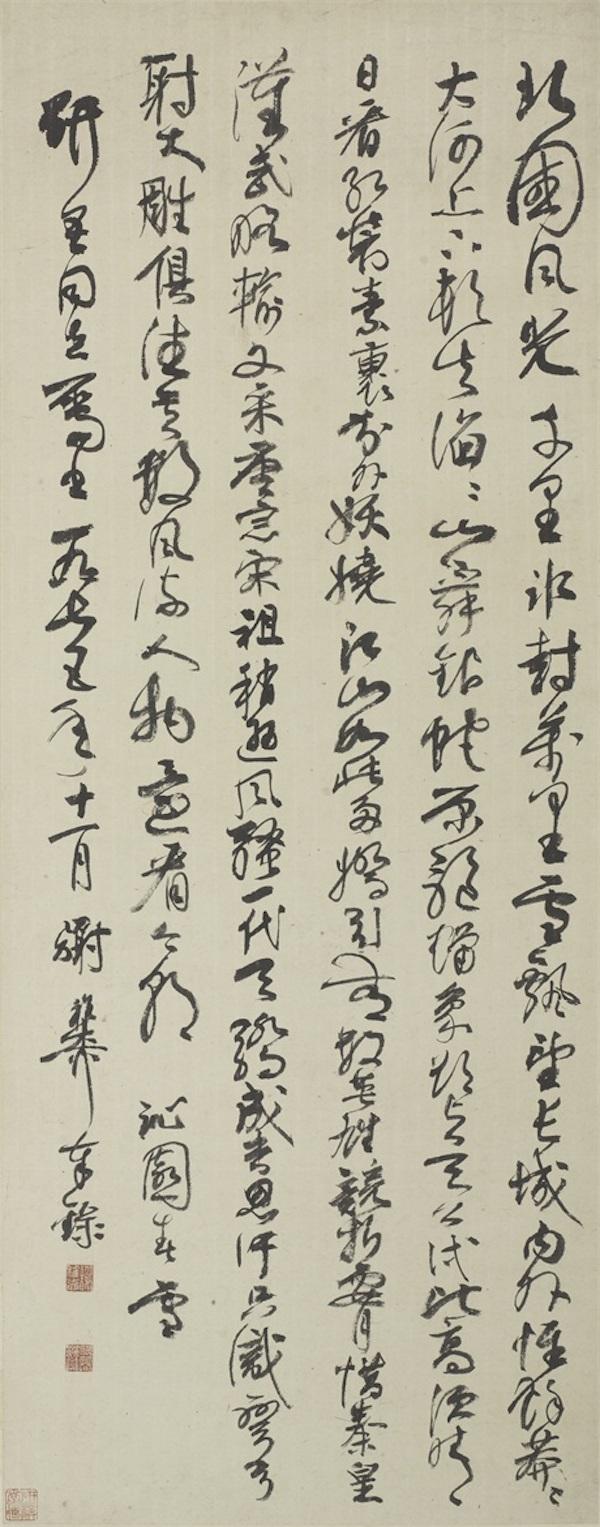 北國風光千里冰封萬里雪飄望長城內外惟餘莽〻
大河上下頓失滔〻山舞銀蛇原馳蠟象欲與天公試比高須晴
日看紅裝素裹分外妖嬈江山如此多嬌引無數英雄競折腰惜秦皇
漢武略輸文采唐宗宋祖稍遜風騷一代天驕成吉思汗只識彎弓
射大雕俱往矣數風流人物還看今朝 沁園春雪
研吾同志屬書一九七五年十一月 奉錄